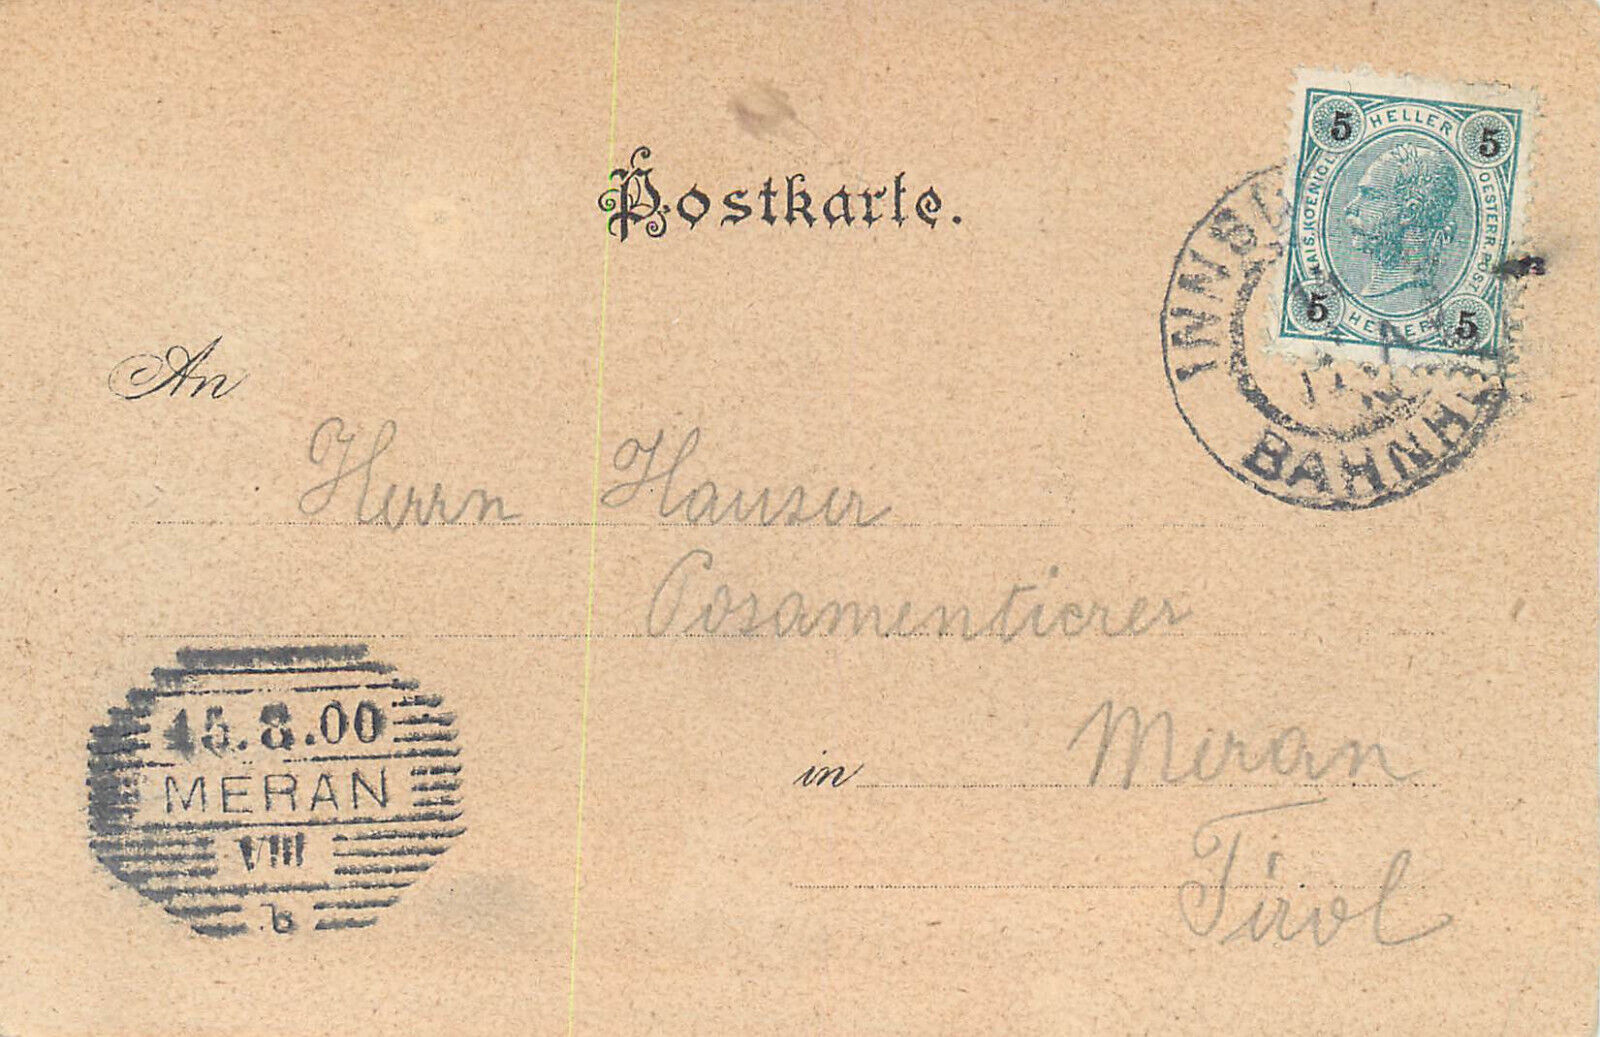 Postkarte.
5 HELLER 5
KAIS. KOENIGL. OESTERR. POST
5 HELLER 5
INNSB
BAHNH
An
Herrn Hauser
Posamentierer
15.8.00
MERAN
VIII
b
in Meran
Tirol